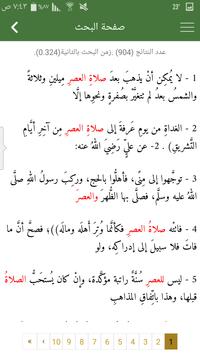 ٧:٤٣ م %٨٧ 23°
صفحة البحث
عدد النتائج (904) .زمن البحث بالثانية(0.324).
1 - لا يُمكِن أنْ يذهبَ بعدَ صلاةِ العصرِ مِيلينِ وثلاثةً
والشمسُ بعدُ لم تتغيَّرْ بصُفرةٍ ونحوِها إلَّا
2 - الغداةِ من يومِ عَرفةَ إلى صلاةِ العَصرِ مِن آخِرِ أيَّامِ
التَّشريقِ) . 2- عن عليٍّ رَضِيَ اللهُ عنه:
3 - توجَّهوا إلى مِنًى، فأهلُّوا بالحجِّ، وركِبَ رسولُ اللهِ صلَّى
اللهُ عليه وسلَّم فصلَّى بها الظهرَ والعصرَ
4 - فاتَتْه صلاةُ العصرِ فكأنَّما وُتِرَ أهلَه ومالَه))؛ فصحَّ أنَّ ما
فاتَ فلا سبيلَ إلى إدراكِه، ولو
5 - ليس للعصرِ سُنَّةٌ راتبةٌ مؤكَّدة، وإنْ كان يُستَحَبُّ الصلاةُ
قبلها، وهذا باتِّفاقِ المذاهبِ
« ‹ 10 9 8 7 6 5 4 3 2 1